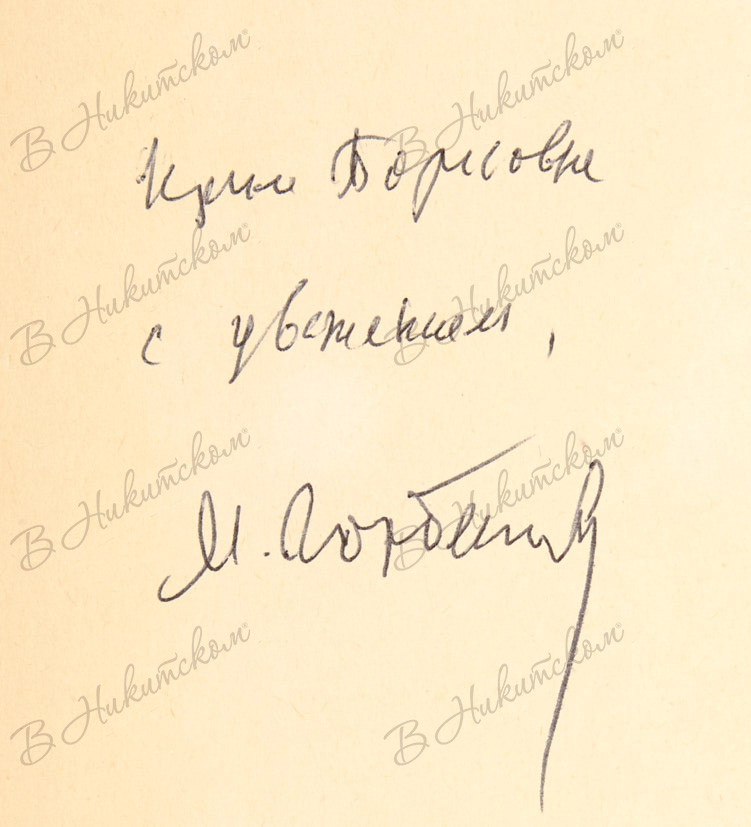 В Никитском В Никитском
Ирине Борисовне
В Никитском В Никитском
с уважением,
В Никитском В Никитском
М. Горбачев
В Никитском В Никитском